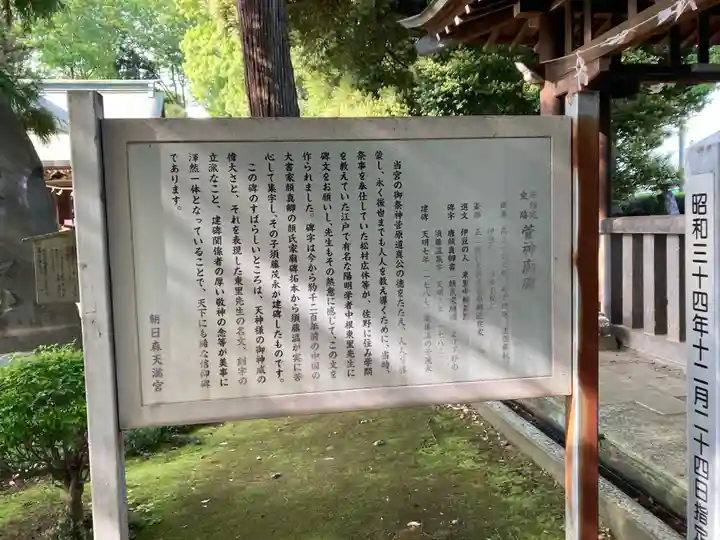 菅神廟碑
撰文 伊豆の人 東里中根
碑字 唐顔真卿書
須藤温集字
建碑 天明七年
当宮の御祭神菅原道真公の徳をたたえ、人々を
蒙し、永く後世までも人々を教え導くために、当時、
祭事を奉仕していた松村広休等が、佐野に住み学問
を教えていた江戸で有名な陽明学者中根東里先生に
碑文をお願いし、先生もその熱意に感じてこの文を
作られました。碑字は今から約千二百年前の中国の
大書家顔真卿の顔氏家廟碑拓本から須藤温が実に苦
心して集字し、その子須藤茂永が建碑したものです。
この碑のすばらしいところは、天神様の御神威の
偉大さと、それを表現した東里先生の名文、刻字の
立派なこと、建碑関係者の厚い敬神の念等が美事に
渾然一体となっていることで、天下にも稀な信仰碑
であります。
朝日森天満宮
昭和三十四年十二月二十四日指定